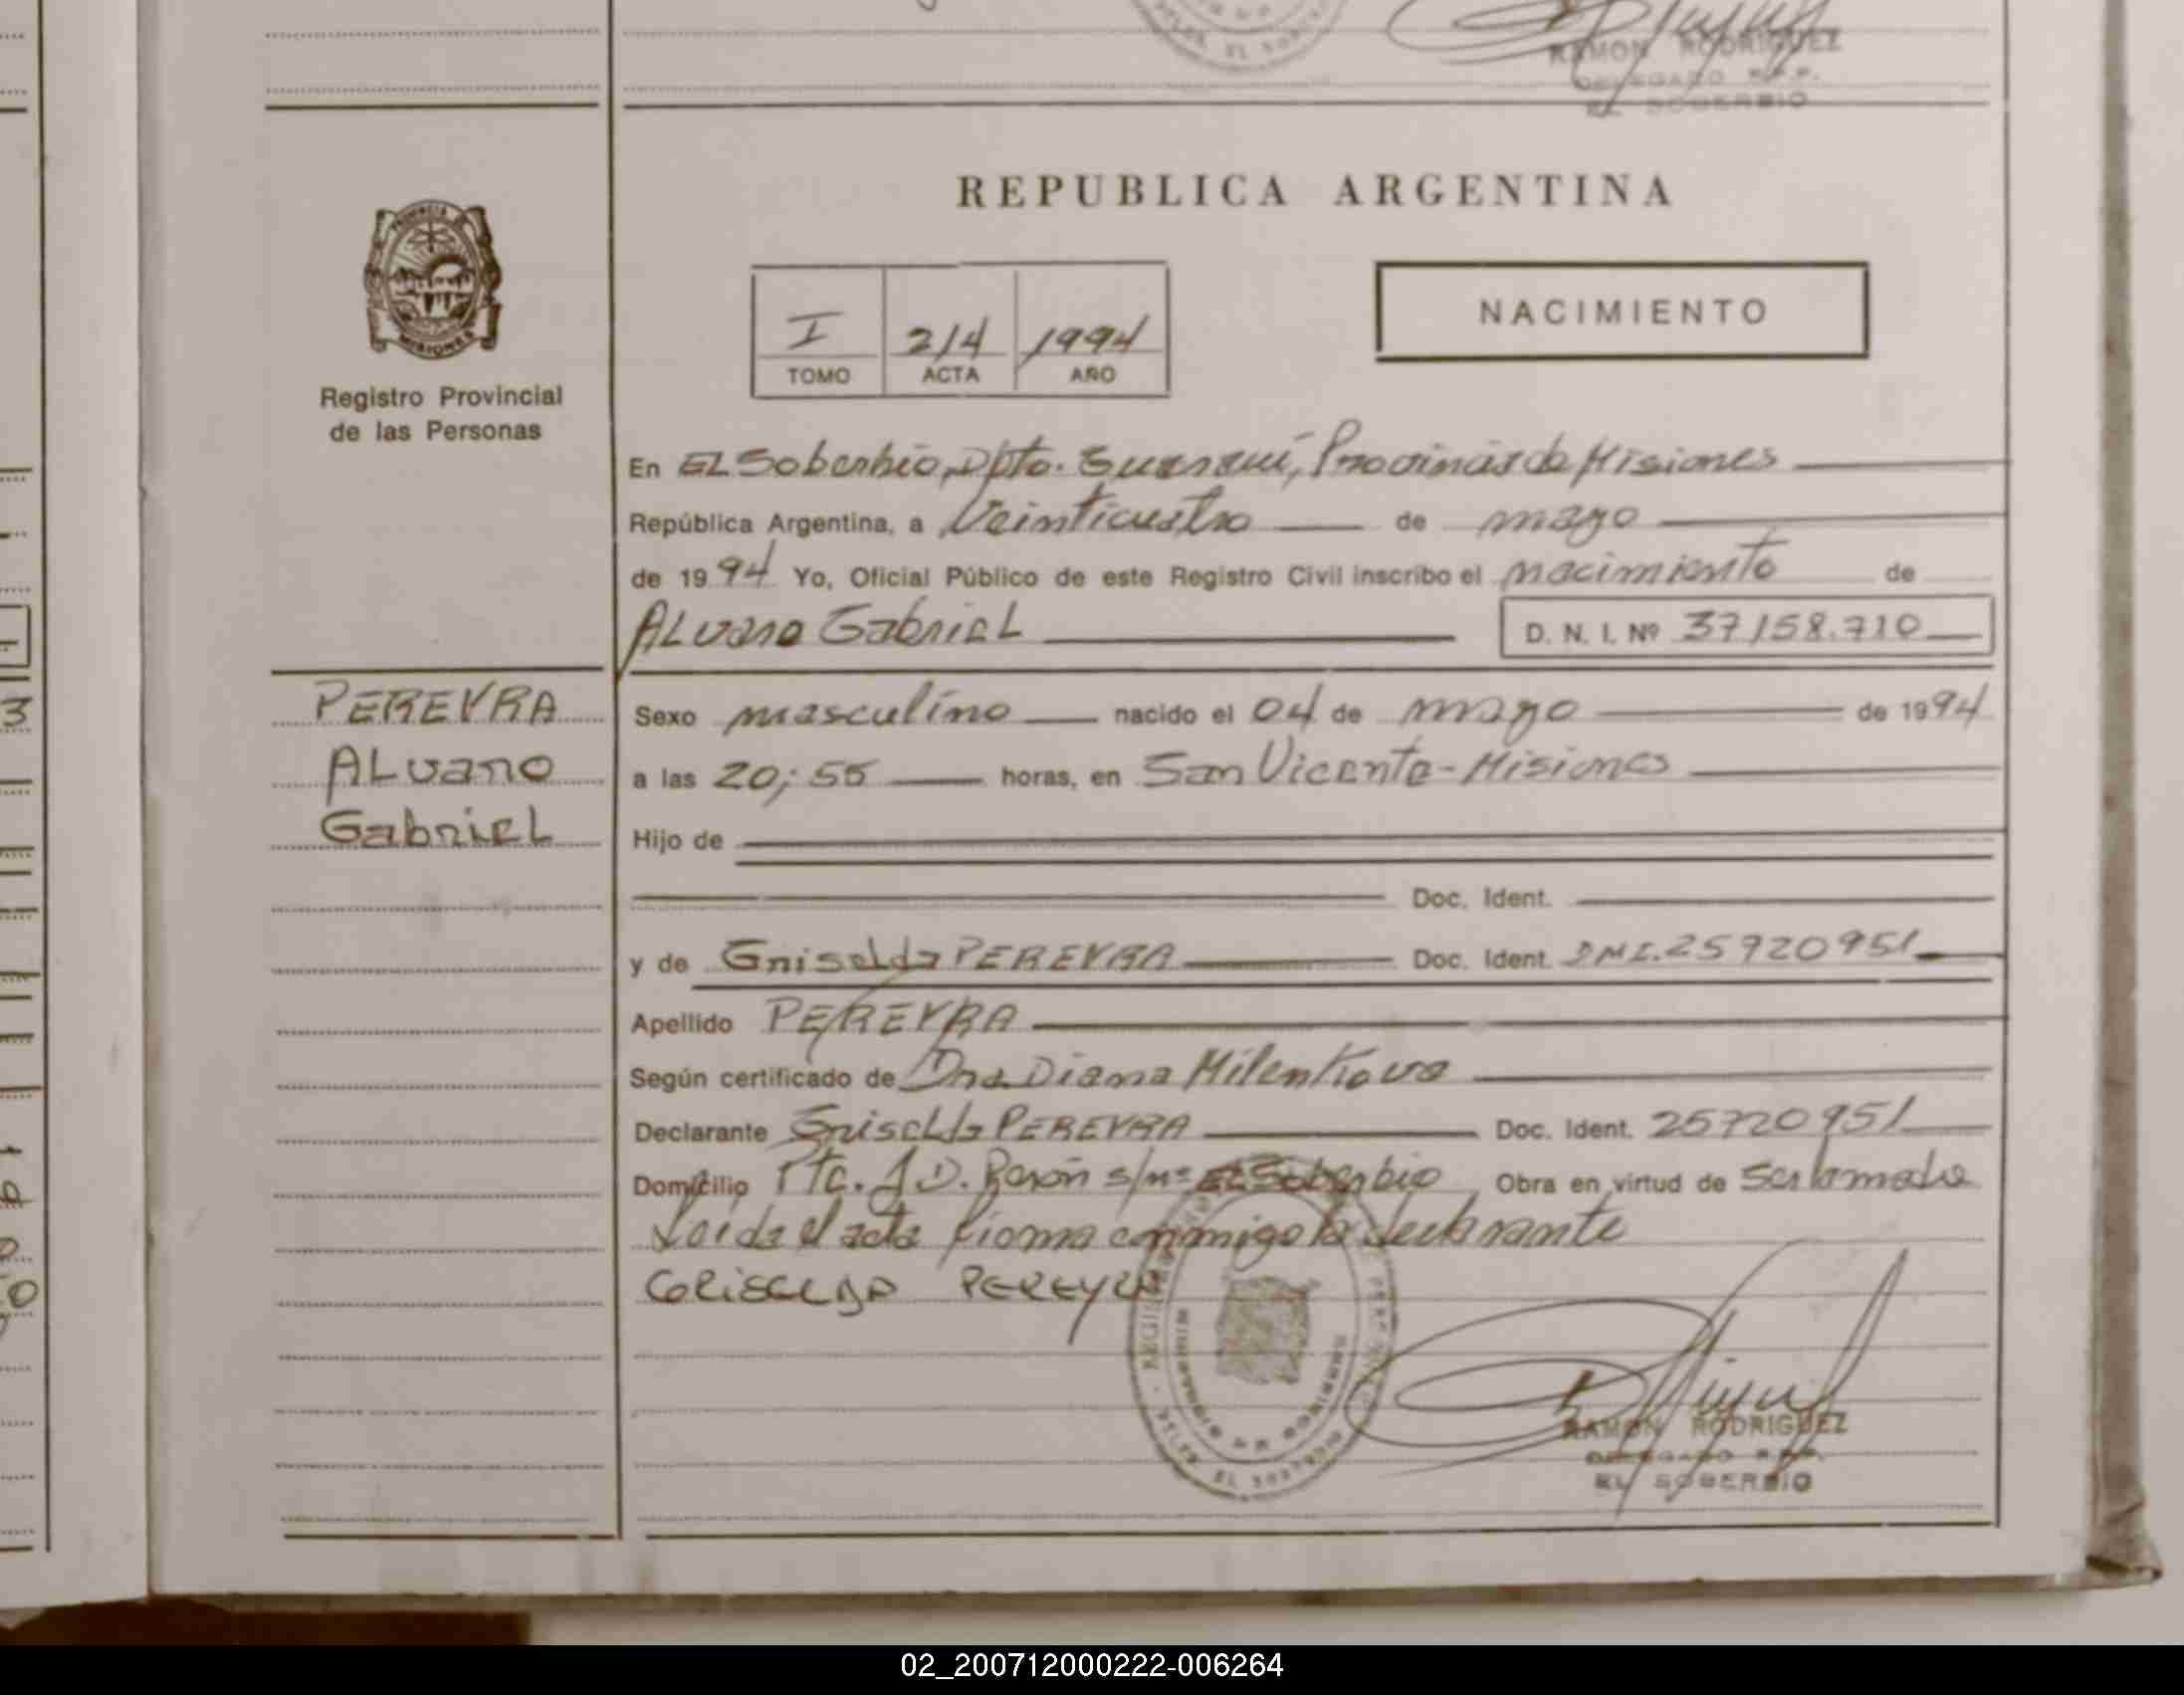 RAMON RODRIGUEZ
DELEGADO R.P.P.
EL SOBERBIO
REPUBLICA ARGENTINA
PROVINCIA
MISIONES
Registro Provincial
de las Personas
I 214 1994
TOMO ACTA AÑO
NACIMIENTO
En EL Soberbio, Dpto. Guaraní, Provincia de Misiones
República Argentina, a Veinticuatro de mayo
de 1994 Yo, Oficial Público de este Registro Civil inscribo el nacimiento de
ALvaro GabrieL D. N. I. Nº 37158.710
PEREYRA
ALvaro
GabrieL
Sexo masculino nacido el 04 de mayo de 1994
a las 20;55 horas, en San Vicente-Misiones
Hijo de
Doc. Ident.
y de GriseLda PEREYRA Doc. Ident. DNI.25720951
Apellido PEREYRA
Según certificado de Dra Diana Milenkova
Declarante GriseLda PEREYRA Doc. Ident. 25720951
Domicilio Pte. J.D. Perón s/nº EL Soberbio Obra en virtud de ser la madre
Leída el acta firma conmigo la declarante
GRISELDA PEREYRA
RAMON RODRIGUEZ
DELEGADO R.P.P.
EL SOBERBIO
02_200712000222-006264